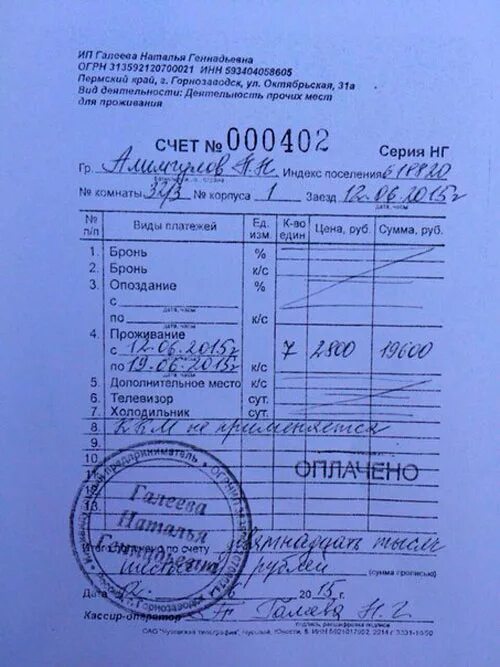 ИП Галеева Наталья Геннадьевна
ОГРН 313592120700021 ИНН 593404058605
Пермский край, г. Горнозаводск, ул. Октябрьская, 31а
Вид деятельности: Деятельность прочих мест
для проживания
СЧЕТ № 000402
Серия НГ
Гр. Алимгулов Н.Н Индекс поселения 618820
№ комнаты 32/3 № корпуса 1 Заезд 12.06.2015г
дата, часы
№ п/п Виды платежей Ед. изм. К-во един Цена, руб. Сумма, руб.
1. Бронь %
2. Бронь к/с
3. Опоздание %
с
дата, часы
по к/с
дата, часы
4. Проживание
с 12.06.2015г 7 2800 19600
по 19.06.2015г к/с
5. Дополнительное место к/с
6. Телевизор сут.
7. Холодильник сут.
8 ККМ не применяется
9
10
11
12
13
ОПЛАЧЕНО
Галеева
Наталья
Геннадьевна
по счету девятнадцать тысяч
рублей
(сумма прописью)
Дата 2015г.
Кассир-оператор Галеева Н.Г
подпись, расшифровка подписи